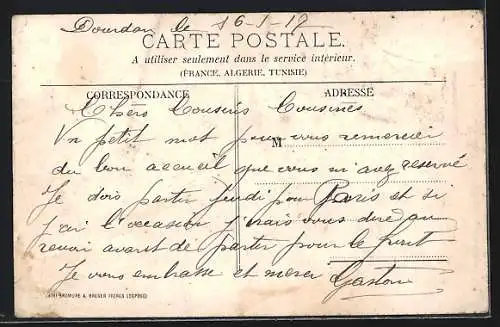 Dourdan le 16-1-12
CARTE POSTALE.
A utiliser seulement dans le service intérieur.
(FRANCE, ALGERIE, TUNISIE)
CORRESPONDANCE ADRESSE
Chers Cousins Cousines
Un petit mot pour vous remercier
M
du bon accueil que vous m'avez reservé
Je dois partir jeudi pour Paris et si
j'ai l'occasion j'irais vous dire au
revoir avant de partir pour le
Je vous embrasse et merci Gaston
BREGER FRERES